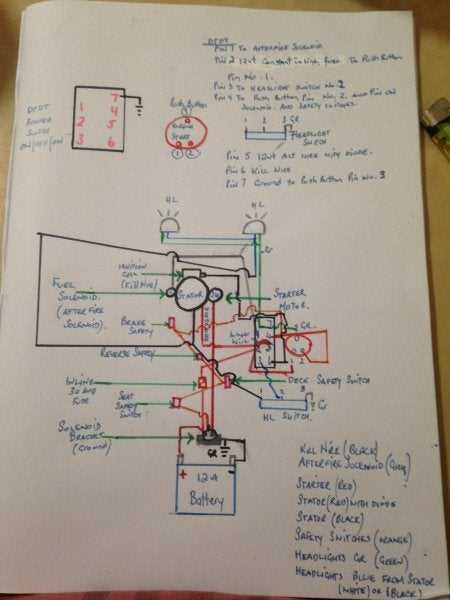 DPDT
Pin 1 To Afterfire Solenoid
Pin 2 12vt Constant
Fused To Push Button
Pin No. 1.
Pin 3 To Headlight Switch No 2
Pin 4 To Push Button Pin No. 2, and Pin on
Solenoid and Safety Switches.
1 2 3 GR
Headlight
Switch
Pin 5 12vt Alt Wire with Diode.
Pin 6 Kill Wire
Pin 7 Ground To Push Button Pin No. 3
DPDT
Rocker
Switch
ON/OFF/ON
7
1 4
2 5
3 6
Push Button
3
Engine
Start
1 2
HL
HL
Gr
Ignition
Coil
(Kill Wire)
Stator
Fuel
Solenoid.
(Afterfire
Solenoid).
Starter
Motor.
Brake
Safety
GR.
Reverse Safety
Inline
30 amp
Fuse
Deck Safety Switch
Seat
Safety
Switch
1 2 3
Gr
HL Switch.
Solenoid
Bracket
(Ground)
GR
+ -
12v
Battery
Kill Wire (Black)
Afterfire Solenoid (Grey)
Starter (Red)
Stator (Red) with Diode
Stator (Black)
Safety Switches (Orange)
Headlights GR (Green)
Headlights Blue From Stator
(White) or (Black)